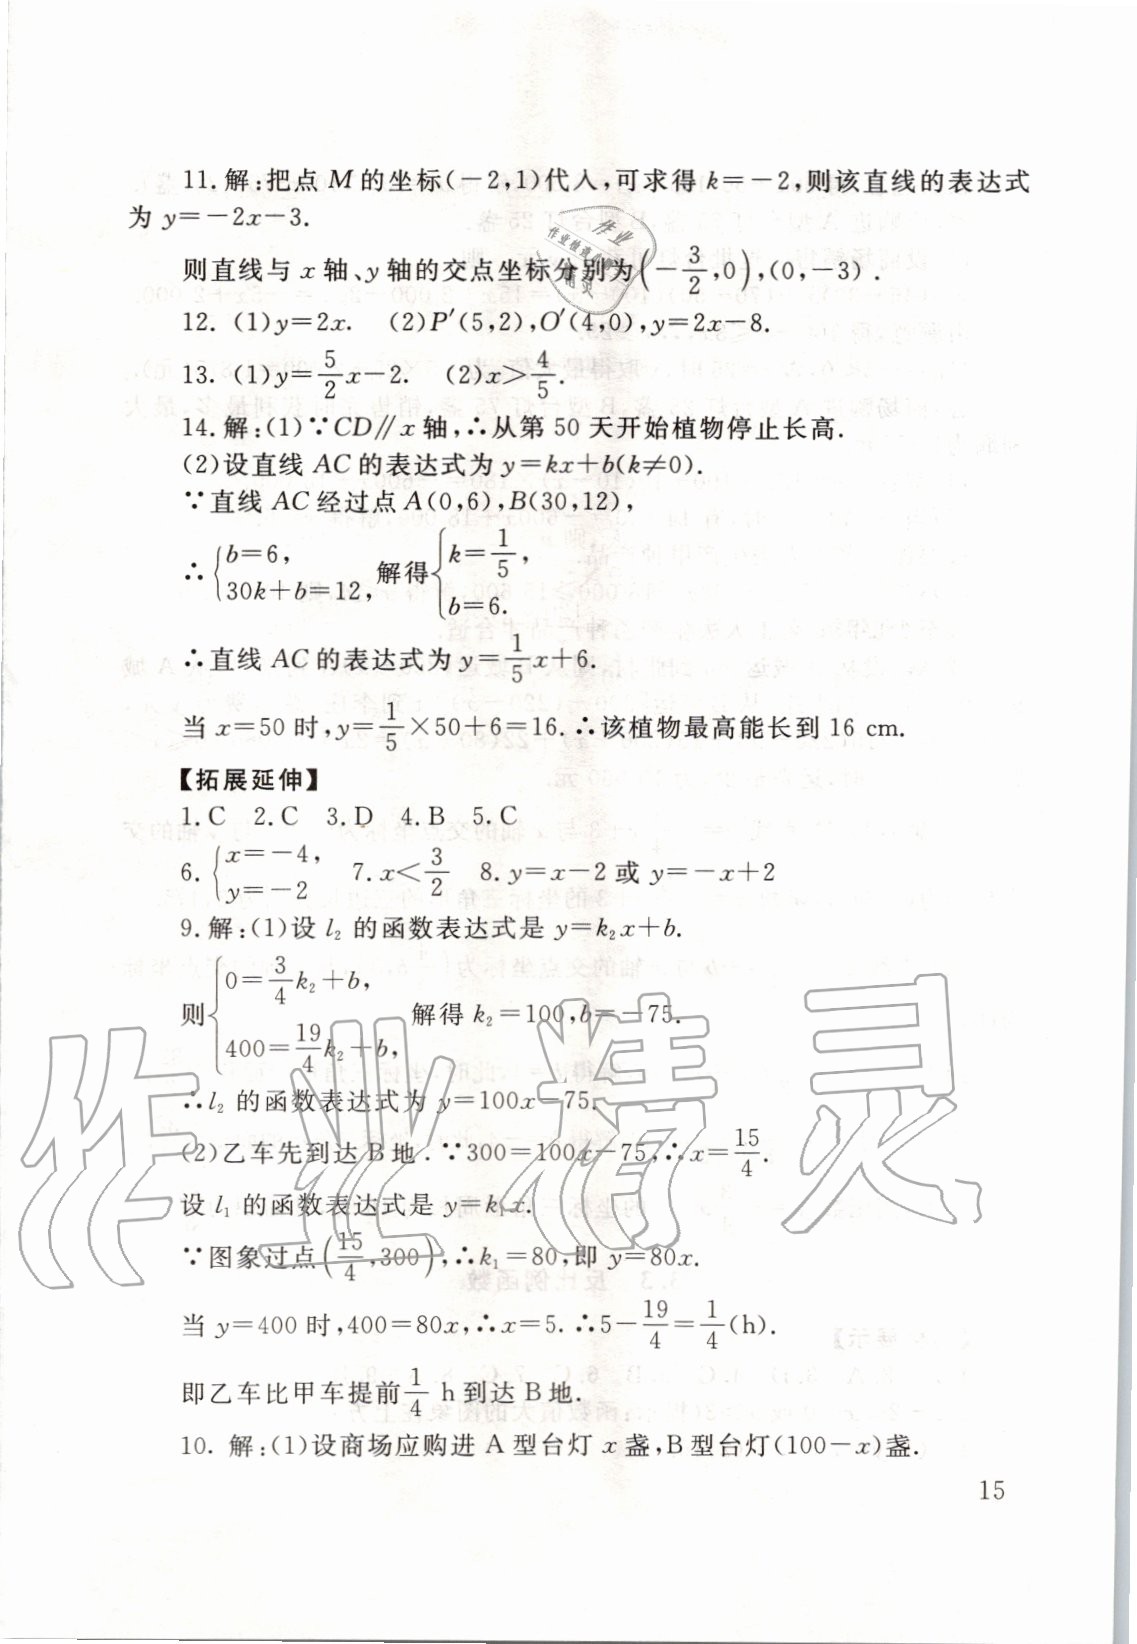 11. 解:把点 M 的坐标(-2,1)代入,可求得 k=-2,则该直线的表达式
为 y=-2x-3.
则直线与 x 轴、y 轴的交点坐标分别为(-3/2,0),(0,-3) .
12. (1)y=2x. (2)P′(5,2),O′(4,0),y=2x-8.
13. (1)y=5/2x-2. (2)x>4/5.
14. 解:(1)∵CD∥x 轴,∴从第 50 天开始植物停止长高.
(2)设直线 AC 的表达式为 y=kx+b(k≠0).
∵直线 AC 经过点 A(0,6),B(30,12),
∴{b=6, 30k+b=12, 解得{k=1/5, b=6.
∴直线 AC 的表达式为 y=1/5x+6.
当 x=50 时,y=1/5×50+6=16.∴该植物最高能长到 16 cm.
【拓展延伸】
1. C 2. C 3. D 4. B 5. C
6. {x=-4, y=-2 7. x<3/2 8. y=x-2 或 y=-x+2
9. 解:(1)设 l₂ 的函数表达式是 y=k₂x+b.
则{0=3/4k₂+b, 400=19/4k₂+b, 解得 k₂=100,b=-75.
∴l₂ 的函数表达式为 y=100x-75.
(2)乙车先到达 B 地.∵300=100x-75,∴x=15/4.
设 l₁ 的函数表达式是 y=k₁x.
∵图象过点(15/4,300),∴k₁=80,即 y=80x.
当 y=400 时,400=80x,∴x=5.∴5-19/4=1/4(h).
即乙车比甲车提前1/4 h 到达 B 地.
10. 解:(1)设商场应购进 A 型台灯 x 盏,B 型台灯(100-x)盏.
15
作业精灵